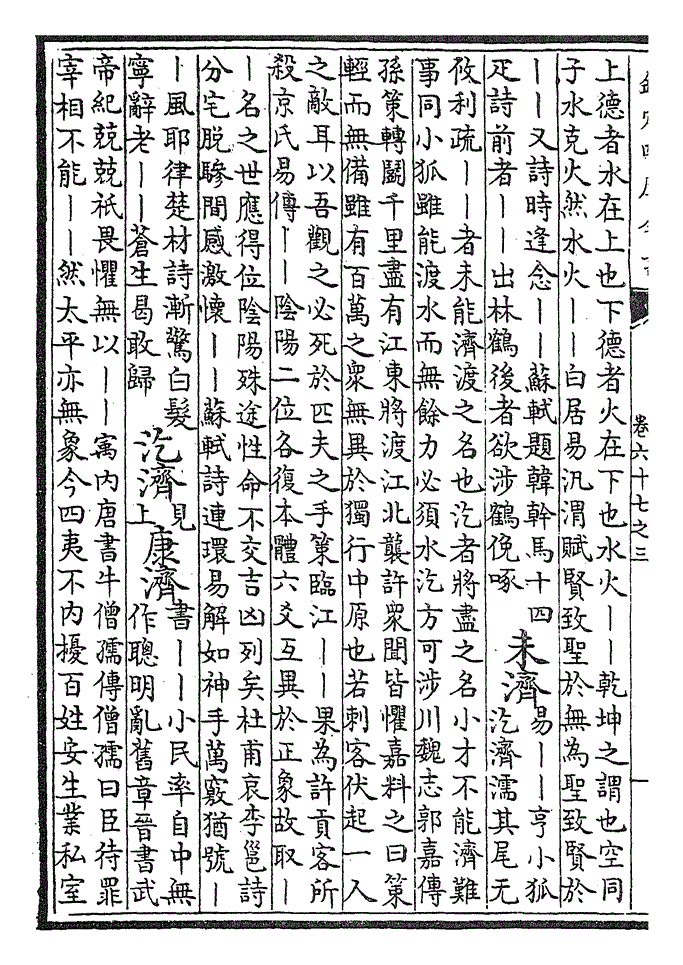 欽定四庫全書
卷六十七之三
一
上德者水在上也下德者火在下也水火丨丨乾坤之謂也空同
子水克火然水火丨丨白居易汎渭賦賢致聖於無為聖致賢於
丨丨又詩時逢念丨丨蘇軾題韓幹馬十四
疋詩前者丨丨出林鶴後者欲涉鶴俛啄
未濟
易丨丨亨小狐
汔濟濡其尾无
攸利疏丨丨者未能濟渡之名也汔者將盡之名小才不能濟難
事同小狐雖能渡水而無餘力必須水汔方可涉川魏志郭嘉傳
孫策轉鬭千里盡有江東將渡江北襲許衆聞皆懼嘉料之曰策
輕而無備雖有百萬之衆無異於獨行中原也若刺客伏起一人
之敵耳以吾觀之必死於匹夫之手策臨江丨丨果為許貢客所
殺京氏易傳丨丨陰陽二位各復本體六爻互異於正象故取丨
丨名之世應得位陰陽殊途性命不交吉凶列矣杜甫哀李邕詩
分宅脫驂間感激懷丨丨蘇軾詩連環易解如神手萬竅猶號丨
丨風耶律楚材詩漸驚白髮
寧辭老丨丨蒼生曷敢歸
汔濟
見
上
康濟
書丨丨小民率自中無
作聰明亂舊章晉書武
帝紀兢兢祇畏懼無以丨丨寓内唐書牛僧孺傳僧孺曰臣待罪
宰相不能丨丨然太平亦無象今四夷不内擾百姓安生業私室